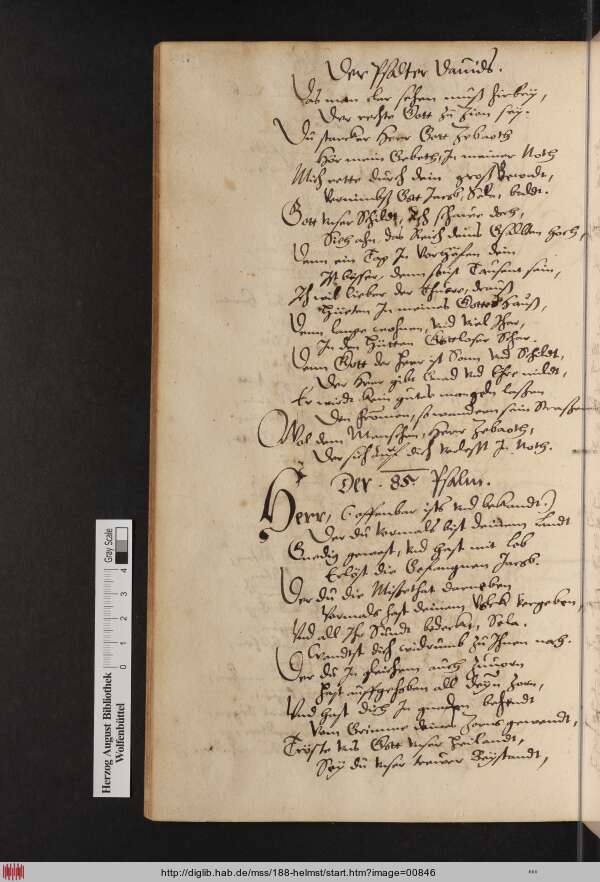 Der Psalter Dauids.
Das man clar sehen muß hirbey,
Der rechte Gott zu Zion sey.
Du starcker Herr Gott Zebaoth
Hör mein Gebeth, In meiner Noth
Mich rette durch dein groß gewalt,
Vernimbs Gott Jacob, Sela, baldt.
Gott vnser Schildt, Ach schauwe doch,
Sieh ahn das Reich deins Gesalbten hoch,
Denn ein Tag In Vorhöfen dein
Ist besser, denn sonst Tausent sein,
Ich wil lieber der Thuere, drauß
Hüeten In meines Gottes Hauß,
Denn lange wohnen, vnd viel Jhar,
In den Hütten Gottloser Schar.
Denn Gott der Herr ist Sonn vnd Schildt,
Der Herr gibt Gnad vnd Ehre mildt,
Er wirdt kein gutes mangeln laßen
Den fromen, so wandern sein Strassen
Wol dem Menschen, Herr Zebaoth,
Der sich auf dich verlest In Noth.
Der . 85. Psalm.
Herr, (offenbar ists vnd bekandt)
Der du vormals bist deinem Landt
Gnedig gewest, vnd hast mit Lob
Erlöst die Gefangnen Jacob.
Der du die Missethat darneben
Vormals hast deinem Volck vergeben,
Vnd all Ihr Sündt bedecket, Sela.
Wandtst dich widrumb zu Ihnen nach.
Der du In gleichem auch zuuorn
Hast auffgehoben all deyn Zorn,
Vnd hast dich In gnaden behendt
Vom Grimme deines Zorns gewendt,
Tröste vns Gott vnser Heilandt,
Sey du vnser treuwer Beystandt,
Herzog August Bibliothek
Wolfenbüttel
0 1 2 3 4
Gray Scale
http://diglib.hab.de/mss/188-helmst/start.htm?image=00846